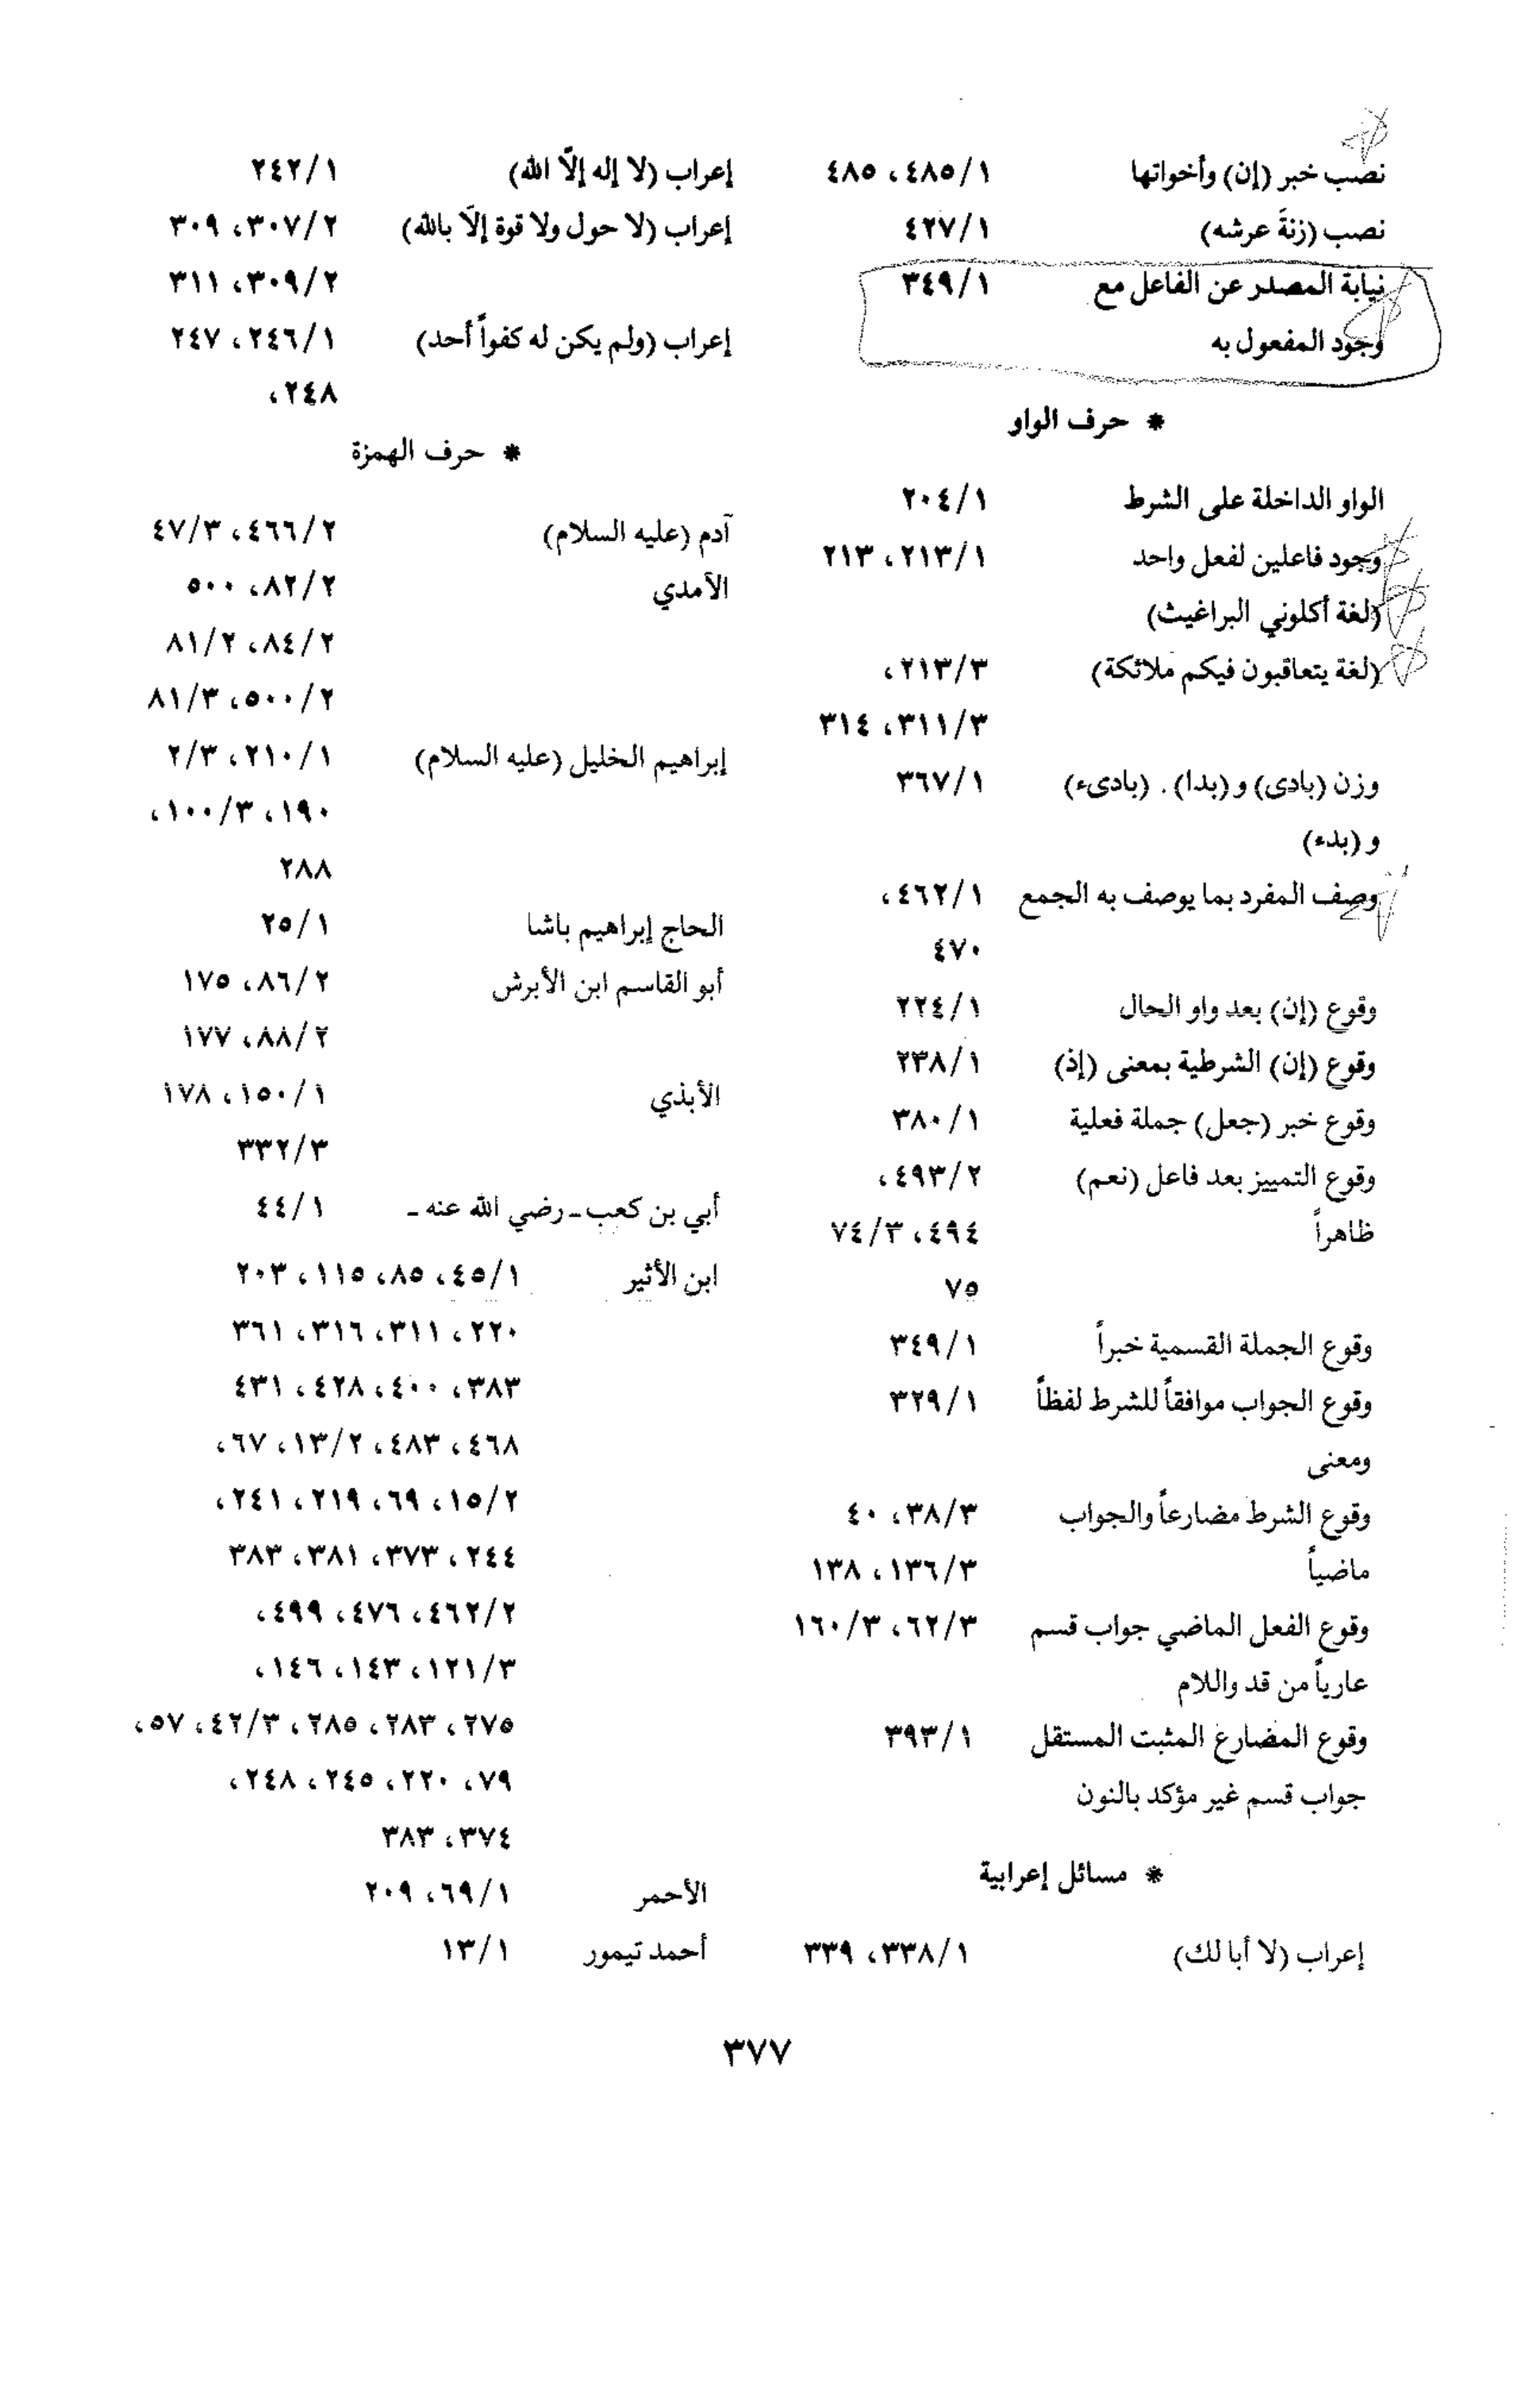 نصب خبر (إن) وأخواتها ٤٨٥/١، ٤٨٥
نصب (زنةَ عرشه) ٤٢٧/١
نيابة المصدر عن الفاعل مع ٣٤٩/١
وجود المفعول به
* حرف الواو
الواو الداخلة على الشرط ٢٠٤/١
وجود فاعلين لفعل واحد ٢١٣/١، ٢١٣
(لغة أكلوني البراغيث)
(لغة يتعاقبون فيكم ملائكة) ٢١٣/٣،
٣١١/٣، ٣١٤
وزن (بادى) و(بدا). (بادىء) ٣٦٧/١
و (بدء)
وصف المفرد بما يوصف به الجمع ٤٦٢/١،
٤٧٠
وقوع (إن) بعد واو الحال ٢٢٤/١
وقوع (إن) الشرطية بمعنى (إذ) ٢٣٨/١
وقوع خبر (جعل) جملة فعلية ٣٨٠/١
وقوع التمييز بعد فاعل (نعم) ٤٩٣/٢،
ظاهراً ٤٩٤، ٧٤/٣
٧٥
وقوع الجملة القسمية خبراً ٣٤٩/١
وقوع الجواب موافقاً للشرط لفظاً ٣٢٩/١
ومعنى
وقوع الشرط مضارعاً والجواب ٣٨/٣، ٤٠
ماضياً ١٣٦/٣، ١٣٨
وقوع الفعل الماضي جواب قسم ٦٢/٣، ١٦٠/٣
عارياً من قد واللام
وقوع المضارع المثبت المستقل ٣٩٣/١
جواب قسم غير مؤكد بالنون
* مسائل إعرابية
إعراب (لا أبا لك) ٣٣٨/١، ٣٣٩
إعراب (لا إله إلاّ الله) ٢٤٢/١
إعراب (لا حول ولا قوة إلاّ بالله) ٣٠٧/٢، ٣٠٩
٣٠٩/٢، ٣١١
إعراب (ولم يكن له كفواً أحد) ٢٤٦/١، ٢٤٧
٢٤٨،
* حرف الهمزة
آدم (عليه السلام) ٤٦٦/٢، ٤٧/٣
الآمدي ٨٢/٢، ٥٠٠
٨٤/٢، ٨١/٢
٥٠٠/٢، ٨١/٣
إبراهيم الخليل (عليه السلام) ٢١٠/١، ٢/٣
١٩٠، ١٠٠/٣،
٢٨٨
الحاج إبراهيم باشا ٢٥/١
أبو القاسم ابن الأبرش ٨٦/٢، ١٧٥
٨٨/٢، ١٧٧
الأبذي ١٥٠/١، ١٧٨
٣٣٢/٣
أبي بن كعب ـ رضي الله عنه ـ ٤٤/١
ابن الأثير ٤٥/١، ٨٥، ١١٥، ٢٠٣
٢٢٠، ٣١١، ٣١٦، ٣٦١
٣٨٣، ٤٠٠، ٤٢٨، ٤٣١
٤٦٨، ٤٨٣، ١٣/٢، ٦٧،
١٥/٢، ٦٩، ٢١٩، ٢٤١،
٢٤٤، ٣٧٣، ٣٨١، ٣٨٣
٤٦٢/٢، ٤٧٦، ٤٩٩،
١٢١/٣، ١٤٣، ١٤٦،
٢٧٥، ٢٨٣، ٢٨٥، ٤٢/٣، ٥٧،
٧٩، ٢٢٠، ٢٤٥، ٢٤٨،
٣٧٤، ٣٨٣
الأحمر ٦٩/١، ٢٠٩
أحمد تيمور ١٣/١
٣٧٧